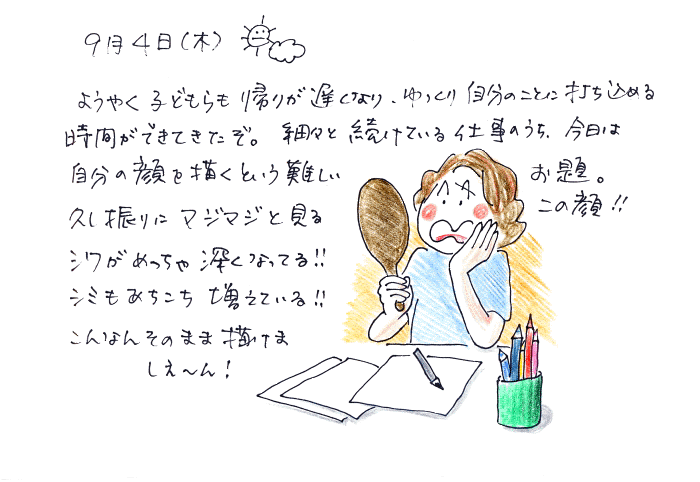 9月4日(木)
ようやく子どもらも帰りが遅くなり、ゆっくり自分のことに打ち込める
時間ができてきたぞ。細々と続けている仕事のうち、今日は
自分の顔を描くという難しい
お題。
久し振りにマジマジと見る
この顔!!
シワがめっちゃ深くなってる!!
シミもあちこち増えている!!
こんなんそのまま描けま
しぇ〜ん!